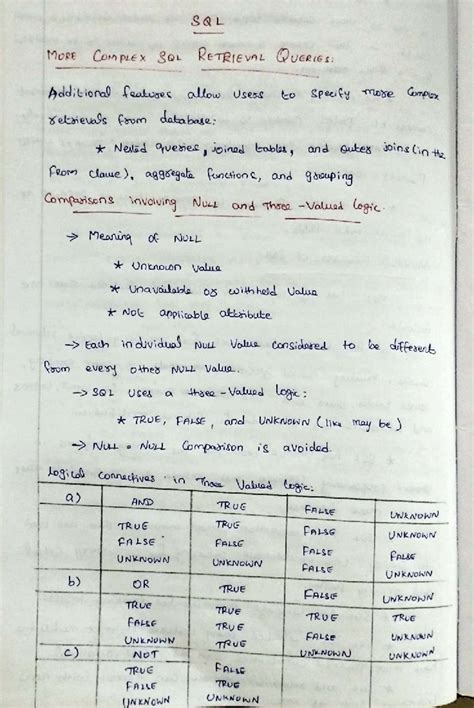 SQL
MORE COMPLEX SQL RETRIEVAL QUERIES:
Additional features allow users to specify more complex
retrievals from database:
* Nested queries, joined tables, and outer joins (in the
From clause), aggregate functions, and grouping
Comparisons involving NULL and Three-Valued logic.
→ Meaning of NULL
* Unknown value
* Unavailable or withheld value
* Not applicable attribute
→ Each individual NULL value considered to be different
from every other NULL value.
→ SQL uses a three-valued logic:
* TRUE, FALSE, and UNKNOWN (like may be)
→ NULL = NULL Comparison is avoided.
Logical connectives in Three Valued logic:
a) AND TRUE FALSE UNKNOWN
TRUE TRUE FALSE UNKNOWN
FALSE FALSE FALSE FALSE
UNKNOWN UNKNOWN FALSE UNKNOWN
b) OR TRUE FALSE UNKNOWN
TRUE TRUE TRUE TRUE
FALSE TRUE FALSE UNKNOWN
UNKNOWN TRUE UNKNOWN UNKNOWN
c) NOT
TRUE FALSE
FALSE TRUE
UNKNOWN UNKNOWN